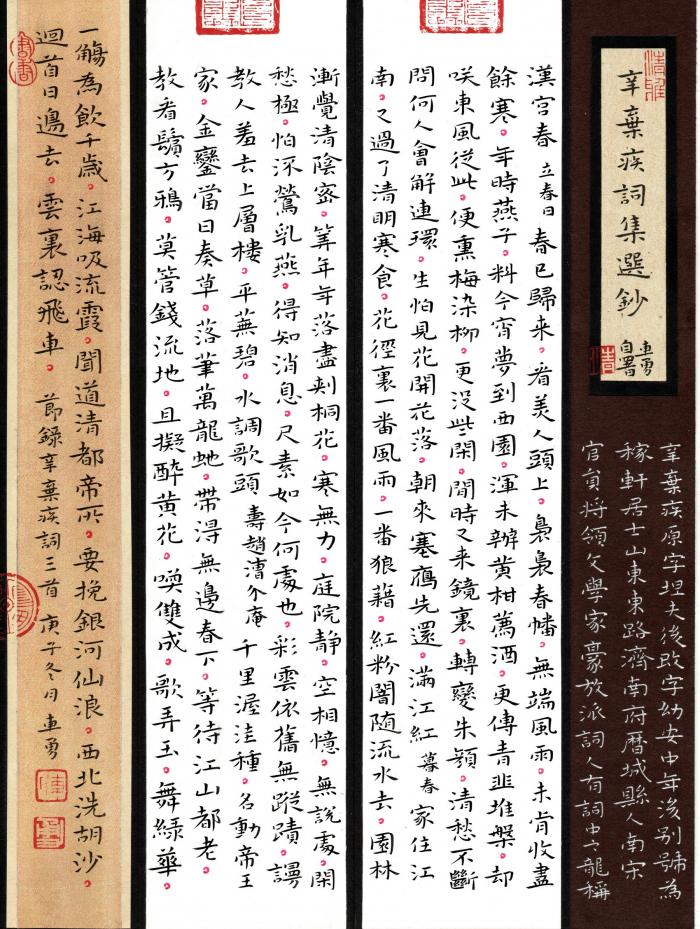 辛棄疾詞集選鈔
車勇
自署
辛棄疾原字坦夫後改字幼安中年後别號為
稼軒居士山東東路濟南府曆城縣人南宋
官員将領文學家豪放派詞人有詞中之龍稱
漢宫春 立春日 春已歸来。看美人頭上。裊裊春幡。無端風雨。未肯收盡
餘寒。年時燕子。料今宵夢到西園。渾未辦黄柑薦酒。更傳青韭堆盤。却
咲東風從此。便熏梅染柳。更没些閑。閒時又来鏡裏。轉變朱顔。清愁不斷
問何人會解連環。生怕見花開花落。朝来塞鴈先還。滿江紅 暮春 家住江
南。又過了清明寒食。花徑裏一番風雨。一番狼藉。紅粉闇随流水去。園林
漸覺清陰密。筭年年落盡刺桐花。寒無力。庭院静。空相憶。無說處。閑
愁極。怕流鶯乳燕。得知消息。尺素如今何處也。彩雲依舊無蹤蹟。謾
教人羞去上層樓。平蕪碧。水調歌頭 壽趙漕介庵 千里渥洼種。名動帝王
家。金鑾當日奏草。落筆萬龍虵。帶得無邊春下。等待江山都老。
教看鬢方鴉。莫管錢流地。且擬醉黄花。喚雙成。歌弄玉。舞緑華。
一觴為飲千歲。江海吸流霞。聞道清都帝所。要挽銀河仙浪。西北洗胡沙。
迴首日邊去。雲裏認飛車。節錄辛棄疾詞三首 庚子冬月 車勇